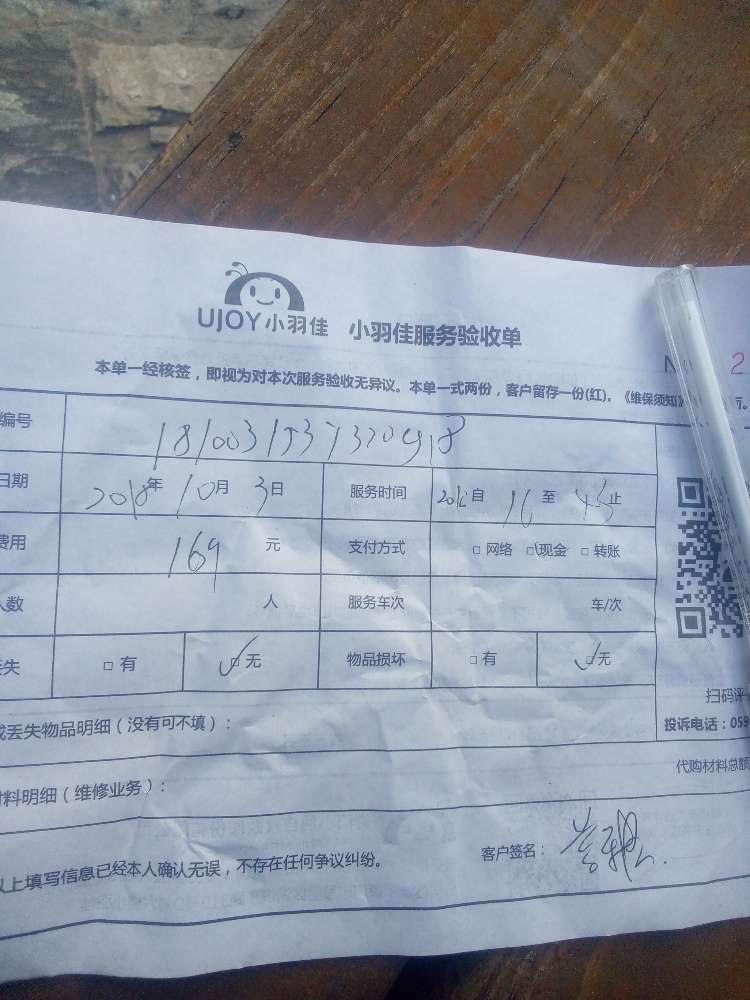 UJOY小羽佳 小羽佳服务验收单
2
本单一经核签，即视为对本次服务验收无异议。本单一式两份，客户留存一份(红)。《维保须知》
编号
日期 2018年 10月 3日 服务时间 自 16 至 45 止
费用 169 元 支付方式 □ 网络 □ 现金 □ 转账
人数 人 服务车次 车/次
丢失 □ 有 □ 无 物品损坏 □ 有 □ 无
扫码评
丢失物品明细（没有可不填）：
投诉电话：059
代购材料总额
材料明细（维修业务）：
以上填写信息已经本人确认无误，不存在任何争议纠纷。
客户签名：